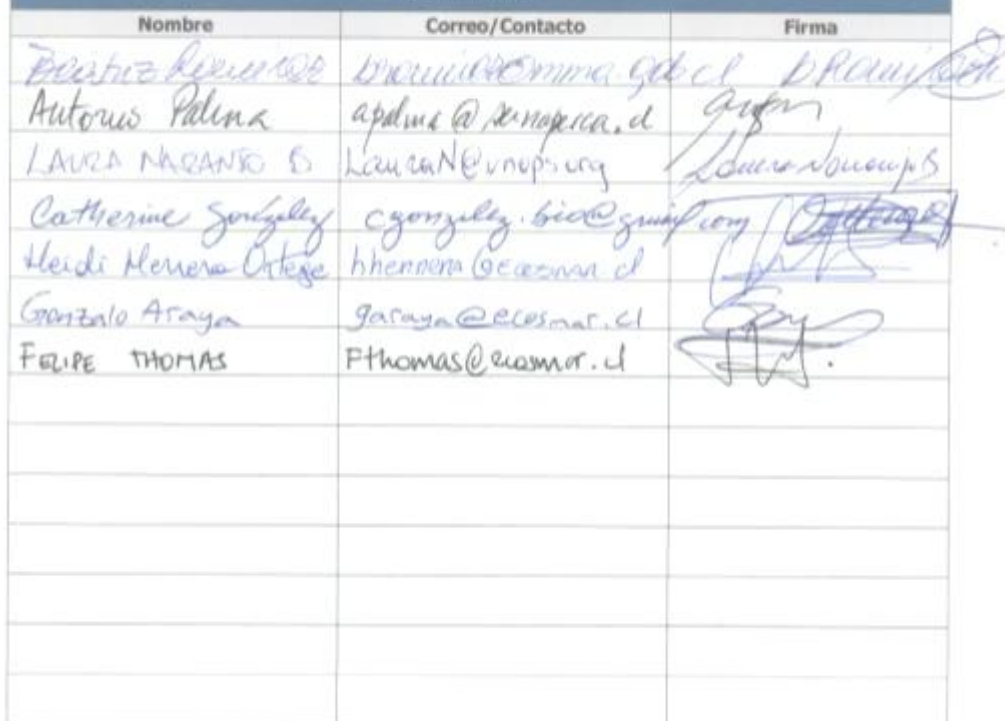 Nombre Correo/Contacto Firma
Beatriz Ramirez bramirez@mma.gob.cl BRamirez
Antonio Palma apalma@sernapesca.cl
LAURA NARANJO B LauraN@unops.org Laura Naranjo B
Catherine González cgonzalez.bio@gmail.com
Heidi Herrera Ortega hherrera@ecosmar.cl
Gonzalo Araya garaya@ecosmar.cl
FELIPE THOMAS Fthomas@ecosmar.cl